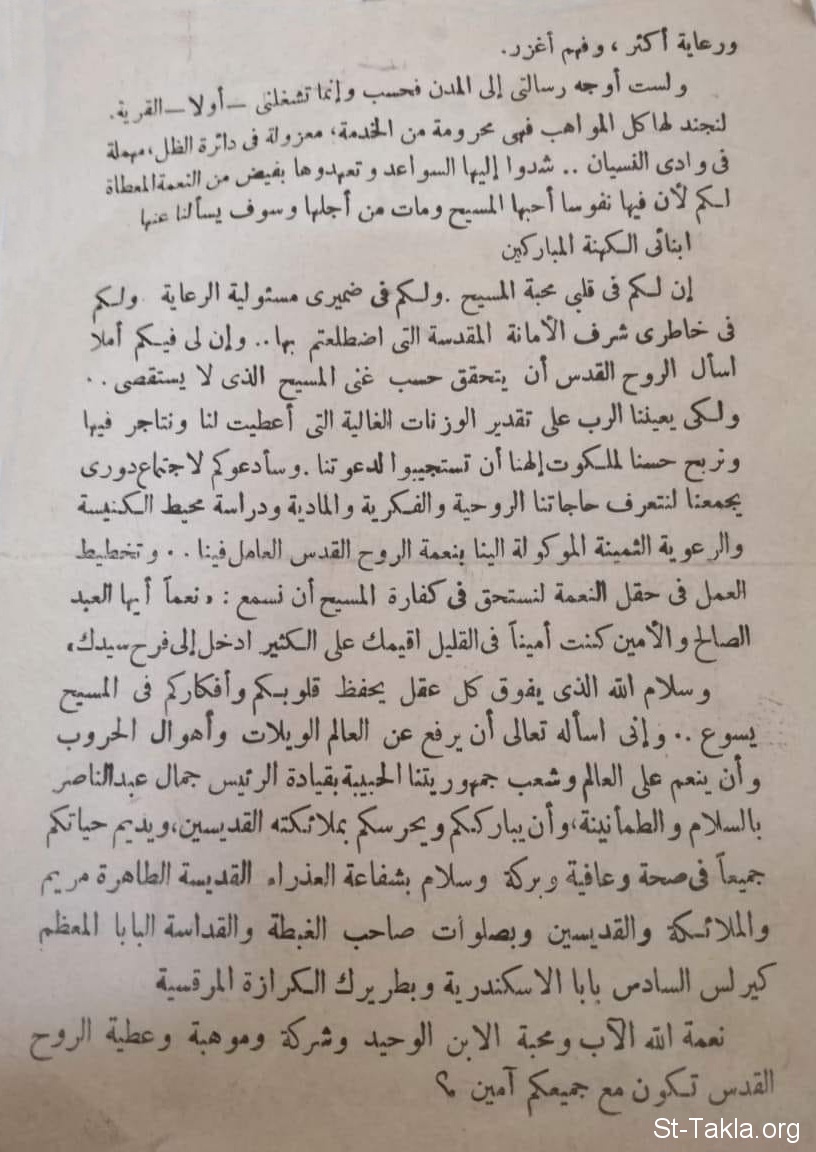 ورعاية أكثر ، وفهم أغزر.
ولست أوجه رسالتى إلى المدن فحسب وإنما تشغلنى —أولا— القرية.
لنجند لها كل المواهب فهى محرومة من الخدمة، معزولة فى دائرة الظل، مهملة
فى وادى النسيان .. شدوا إليها السواعد وتعهدوها بفيض من النعمة المعطاة
لكم لأن فيها نفوسا أحبها المسيح ومات من أجلها وسوف يسألنا عنها
ابنائى الكهنة المباركين
إن لكم فى قلبى محبة المسيح . ولكم فى ضميرى مسئولية الرعاية ولكم
فى خاطرى شرف الأمانة المقدسة التى اضطلعتم بها .. وإن لى فيكم أملا
اسأل الروح القدس أن يتحقق حسب غنى المسيح الذى لا يستقصى ..
ولكى يعيننا الرب على تقدير الوزنات الغالية التى أعطيت لنا ونتاجر فيها
ونربح حسنا لملكوت إلهنا أن تستجيبوا لدعوتنا . وسأدعوكم لاجتماع دورى
يجمعنا لنتعرف حاجاتنا الروحية والفكرية والمادية ودراسة محيط الكنيسة
والرعوية الثمينة الموكولة الينا بنعمة الروح القدس العامل فينا .. وتخطيط
العمل فى حقل النعمة لنستحق فى كفارة المسيح أن نسمع : «نعماً أيها العبد
الصالح والأمين كنت أميناً فى القليل اقيمك على الكثير ادخل إلى فرح سيدك»
وسلام الله الذى يفوق كل عقل يحفظ قلوبكم وأفكاركم فى المسيح
يسوع .. وإنى اسأله تعالى أن يرفع عن العالم الويلات وأهوال الحروب
وأن ينعم على العالم وشعب جمهوريتنا الحبيبة بقيادة الرئيس جمال عبد الناصر
بالسلام والطمأنينة، وأن يبارككم ويحرسكم بملائكته القديسين، ويديم حياتكم
جميعاً فى صحة وعافية وبركة وسلام بشفاعة العذراء القديسة الطاهرة مريم
والملائكة والقديسين وبصلوات صاحب الغبطة والقداسة البابا المعظم
كيرلس السادس بابا الاسكندرية وبطريرك الكرازة المرقسية
نعمة الله الآب ومحبة الابن الوحيد وشركة وموهبة وعطية الروح
القدس تكون مع جميعكم آمين ؟
St-Takla.org